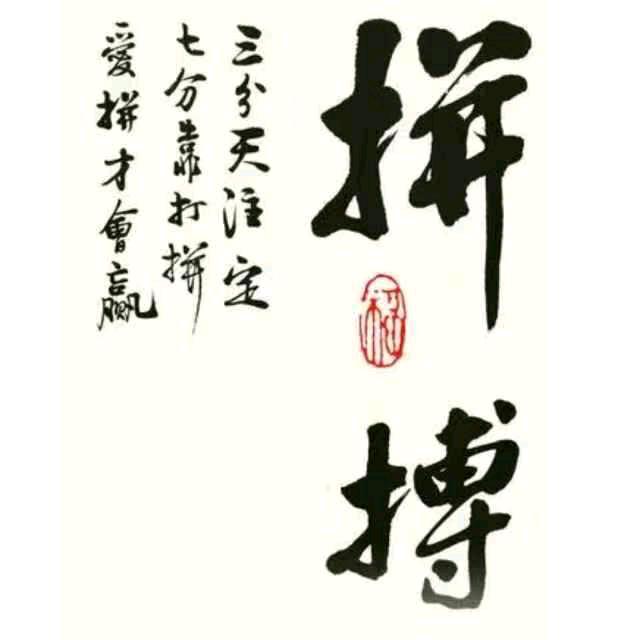 拼搏
三分天注定
七分靠打拼
愛拼才會贏